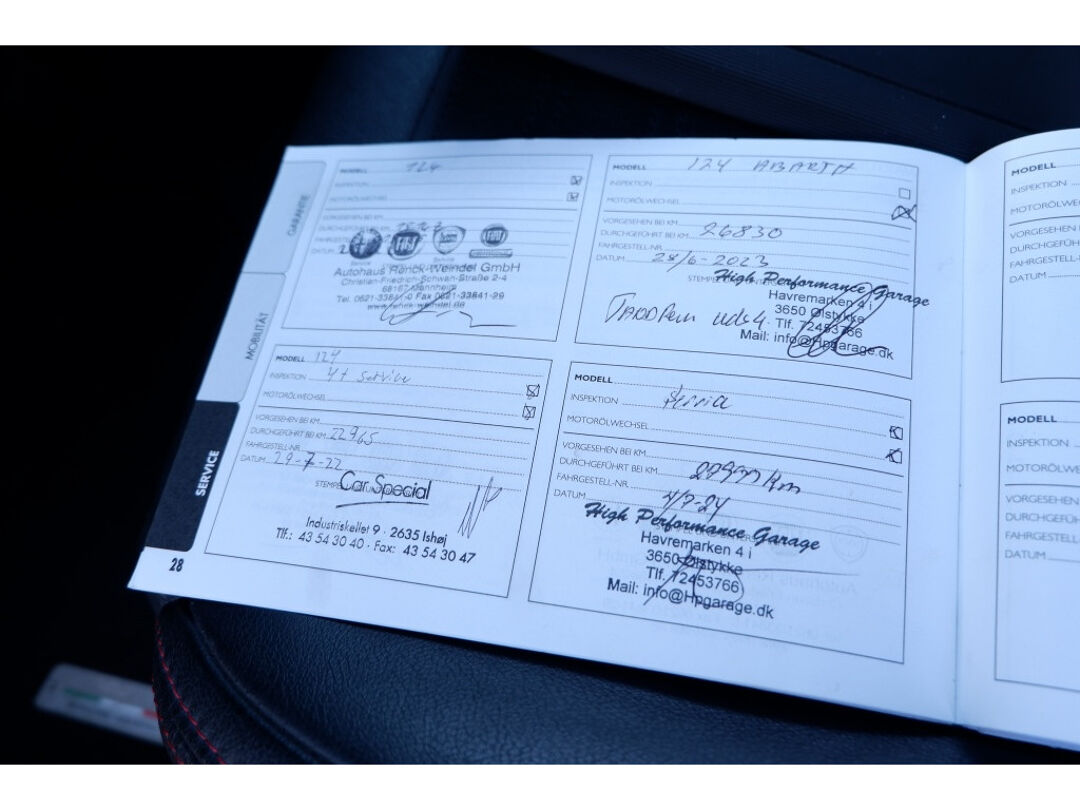 GARANTIE
MOBILITÄT
SERVICE
28
MODELL 124
INSPEKTION
MOTORÖLWECHSEL
VORGESEHEN BEI KM
DURCHGEFÜHRT BEI KM
DATUM
Autohaus Renck-Weindel GmbH
Christian-Friedrich-Schwan-Straße 2-4
68167 Mannheim
Tel. 0621-33841-0 Fax 0621-33841-29
www.renck-weindel.de
MODELL 124 ABARTH
INSPEKTION
MOTORÖLWECHSEL
VORGESEHEN BEI KM
DURCHGEFÜHRT BEI KM 26830
FAHRGESTELL-NR.
DATUM 28/6-2023
High Performance Garage
Havremarken 4 i
3650 Ølstykke
Tlf. 72453766
Mail: info@Hpgarage.dk
MODELL 124
INSPEKTION 4+ service
MOTORÖLWECHSEL
VORGESEHEN BEI KM
DURCHGEFÜHRT BEI KM 22965
FAHRGESTELL-NR.
DATUM 29-7-22
Car Special
Industriskellet 9 · 2635 Ishøj
Tlf.: 43 54 30 40 · Fax: 43 54 30 47
MODELL
INSPEKTION
MOTORÖLWECHSEL
VORGESEHEN BEI KM
DURCHGEFÜHRT BEI KM
FAHRGESTELL-NR.
DATUM 4/7-24
High Performance Garage
Havremarken 4 i
3650 Ølstykke
Tlf. 72453766
Mail: info@Hpgarage.dk
MODELL
INSPEKTION
VORGESEHEN
DATUM
MODELL
INSPEKTION
VORGESEHEN
DATUM